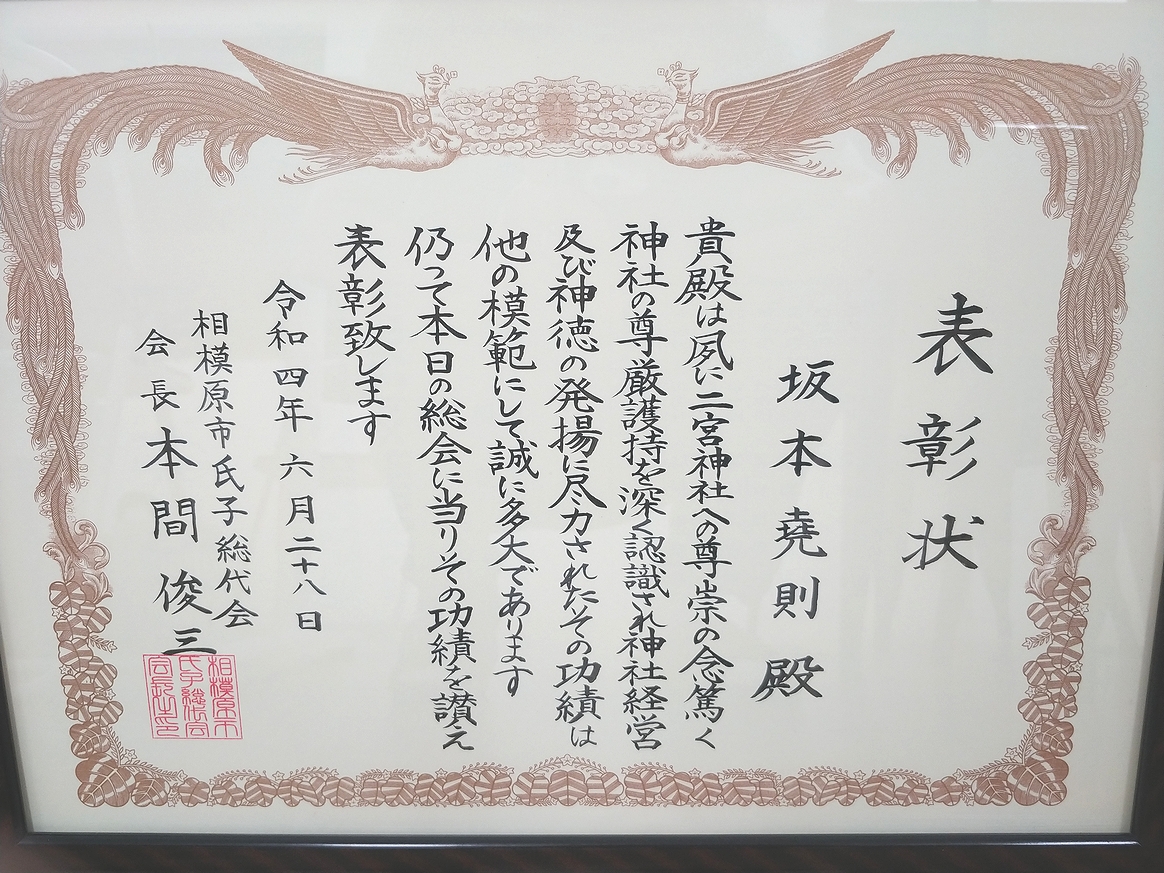 表彰状
坂本堯則殿
貴殿は夙に二宮神社への尊崇の念篤く
神社の尊厳護持を深く認識され神社経営
及び神徳の発揚に尽力されたその功績は
他の模範にして誠に多大であります
仍って本日の総会に当りその功績を讃え
表彰致します
令和四年六月二十八日
相模原市氏子総代会
会長本間俊三
相模原市
氏子総代会
会長之印